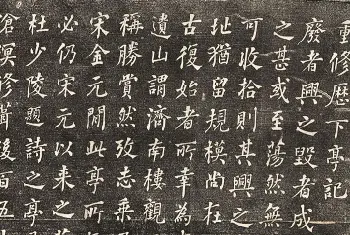 重修歷下亭記
廢者興之毀者成
之甚或至蕩然無
可收拾則其興之
址猶留規模尚在
古復始者所幸為
遺山謂濟南樓觀
稱勝賞然攷志乘
宋金元間此亭所
必仍宋元以來之
杜少陵題詩之亭
滄溟修葺後百五